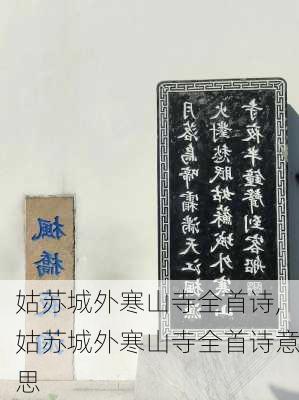 楓橋夜泊
月落烏啼霜滿天江楓漁
火對愁眠姑蘇城外寒山
寺夜半鐘聲到客船
姑苏城外寒山寺全首诗,
姑苏城外寒山寺全首诗意
思